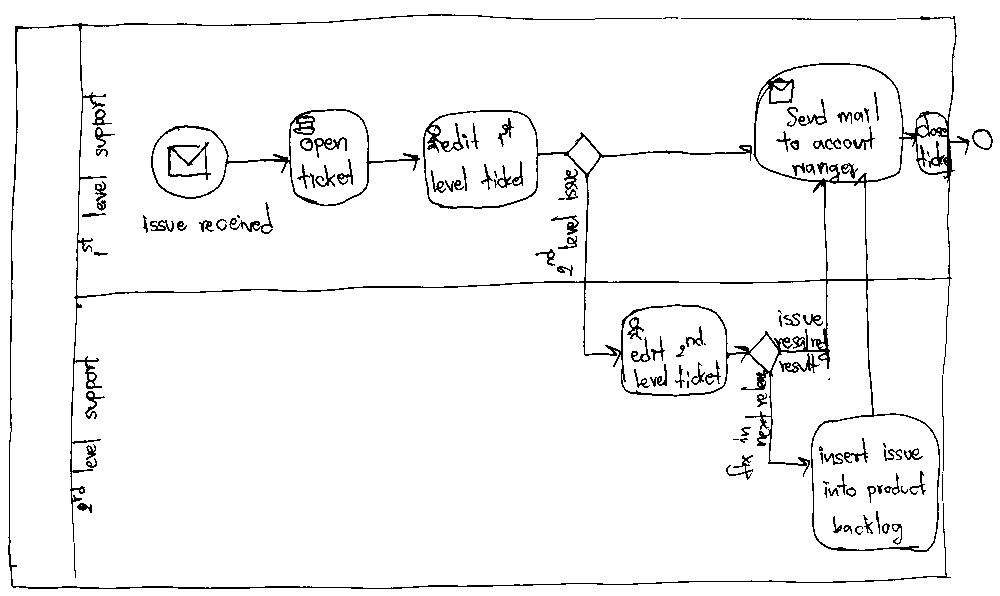 1st level support
issue received
open
ticket
edit 1st
level ticket
2nd level issue
Send mail
to account
manger
close
ticket
2nd level support
edit 2nd
level ticket
issue
result
fix in
next release
insert issue
into product
backlog